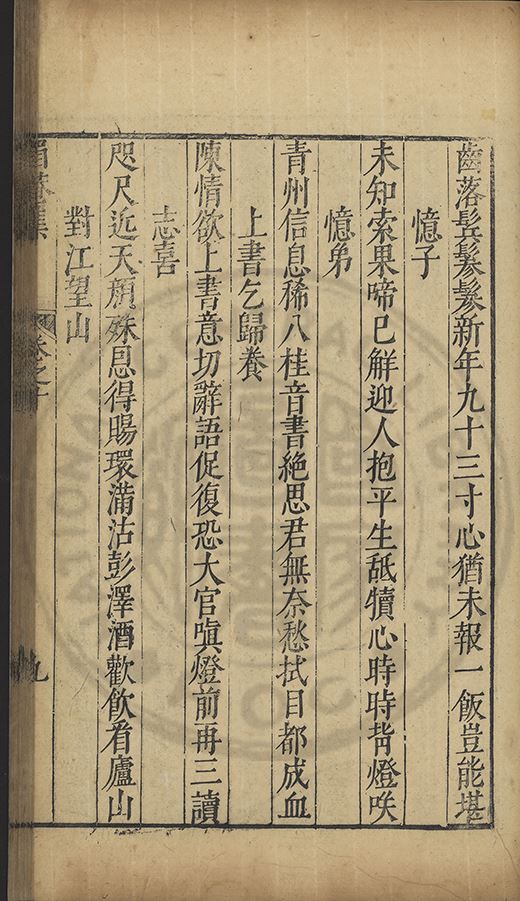 齒落髩鬖鬖新年九十三寸心猶未報一飯豈能堪
憶子
未知索果啼已解迎人抱平生舐犢心時時背燈咲
憶弟
青州信息稀八桂音書絶思君無奈愁拭目都成血
上書乞歸養
陳情欲上書意切辭語促復恐大官嗔燈前再三讀
志喜
咫尺近天顔殊恩得賜環滿沽彭澤酒歡飲看廬山
對江望山
卷之十
九